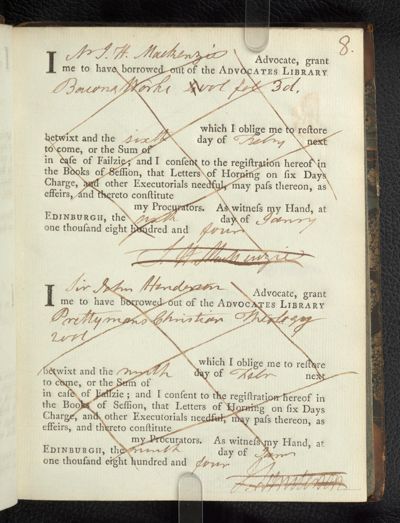 8.
I Mr J. H. Mackenzie Advocate, grant
me to have borrowed out of the ADVOCATES LIBRARY
Bacons Works 2 vol fol 3d.
betwixt and the sixth which I oblige me to reſtore
day of Febry next
to come, or the Sum of
in caſe of Failzie; and I conſent to the regiſtration hereof in
the Books of Seſſion, that Letters of Horning on ſix Days
Charge, and other Executorials needful, may paſs thereon, as
effeirs, and thereto conſtitute
my Procurators. As witneſs my Hand, at
EDINBURGH, the day of Janry
one thouſand eight hundred and four
J. H. Mackenzie
I Sir John Henderson Advocate, grant
me to have borrowed out of the ADVOCATES LIBRARY
Prettymans Christian Theology
2 vol
betwixt and the ninth which I oblige me to reſtore
day of Febr next
to come, or the Sum of
in caſe of Failzie; and I conſent to the regiſtration hereof in
the Books of Seſſion, that Letters of Horning on ſix Days
Charge, and other Executorials needful, may paſs thereon, as
effeirs, and thereto conſtitute
my Procurators. As witneſs my Hand, at
EDINBURGH, the ninth day of Janr
one thouſand eight hundred and four